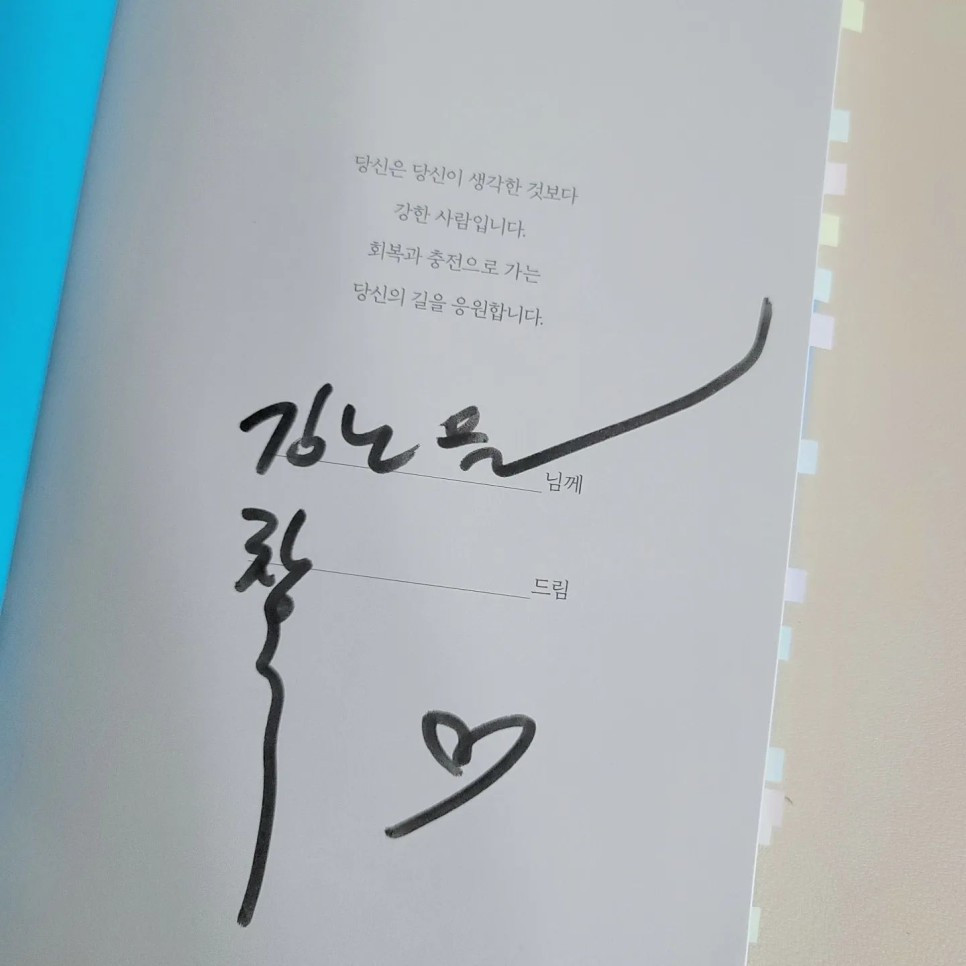 당신은 당신이 생각한 것보다
강한 사람입니다.
회복과 충전으로 가는
당신의 길을 응원합니다.
님께
드림